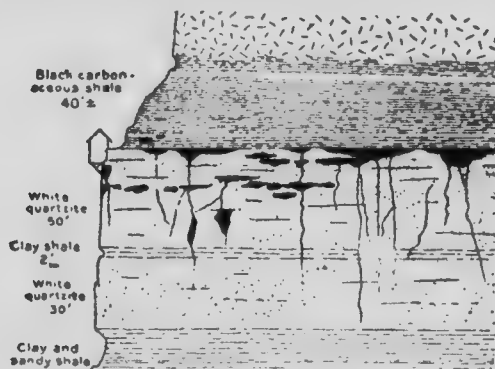 Black carbon-
aceous shale
40'±
White
quartzite
50'
Clay shale
White
quartzite
30'
Clay and
sandy shale